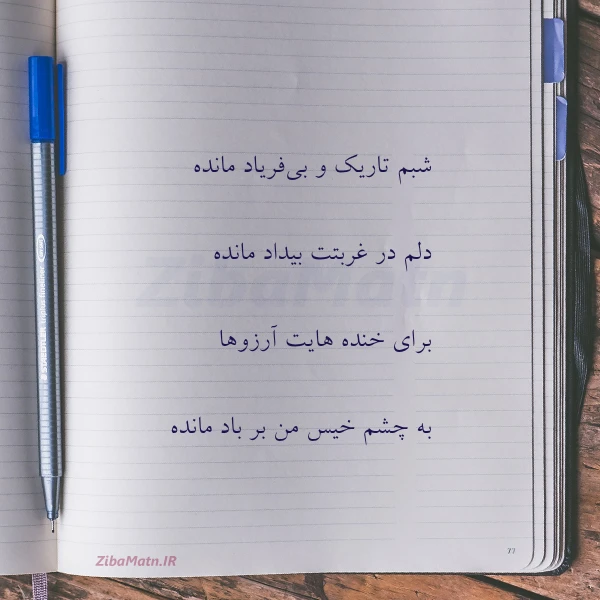 شبم تاریک و بی‌فریاد مانده
دلم در غربتت بیداد مانده
برای خنده هایت آرزوها
به چشم خیس من بر باد مانده
ZibaMatn
ZibaMatn.IR
77